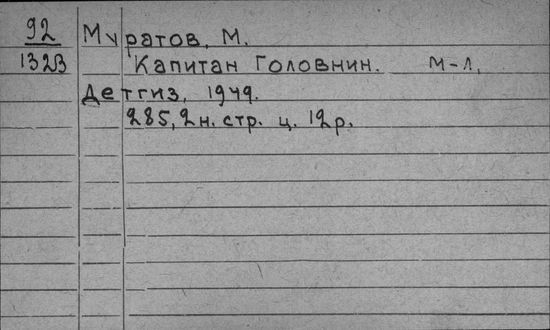 92 Муратов, М.
1323 Капитан Головнин. М-Л,
Детгиз, 1949.
285, 2н. стр. ц. 12р.